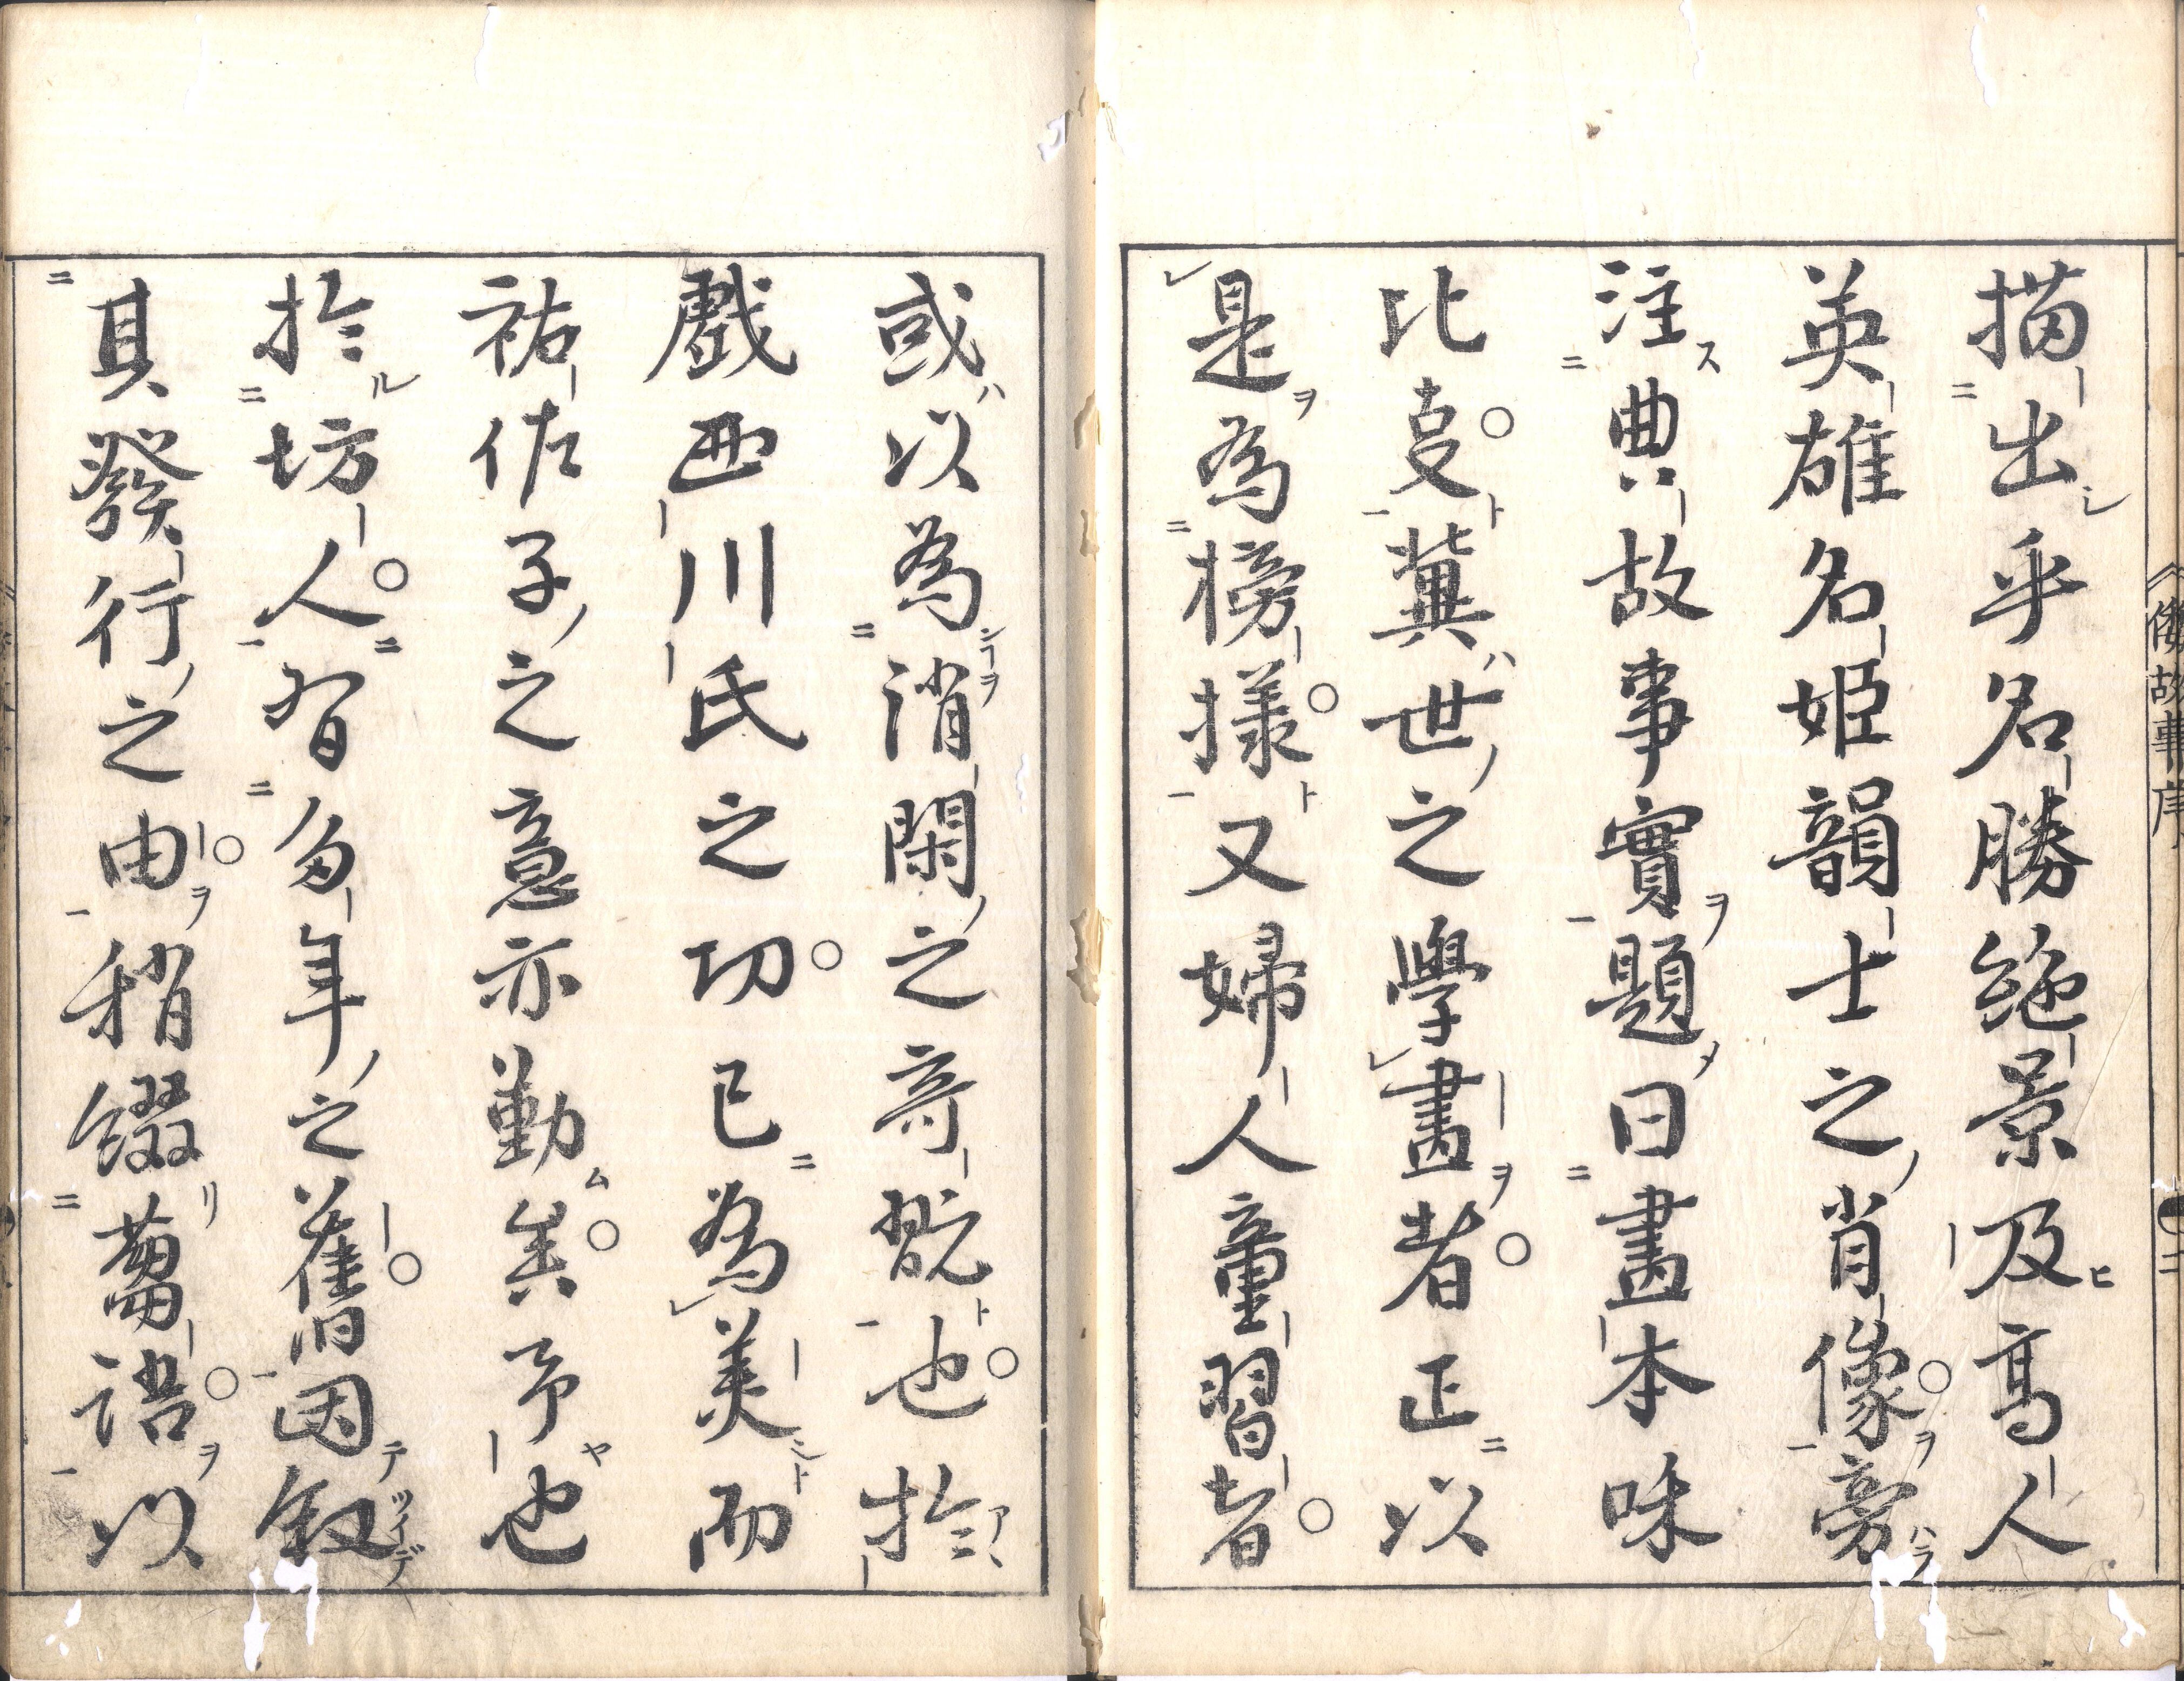 倭故事序
二
描出乎名勝絶景及高人
英雄名姫韻士之肖像。旁
注典故事實題曰畫本咊
比叓。冀世之學畫者。正以
是為榜樣。又婦人童習者。
或以為消閑之奇翫也。於
戲西川氏之功。已為美而
祐佐子之意亦勤矣。予也
於坊人。有多年之舊。因叙
其發行之由。稍綴蒭語。以